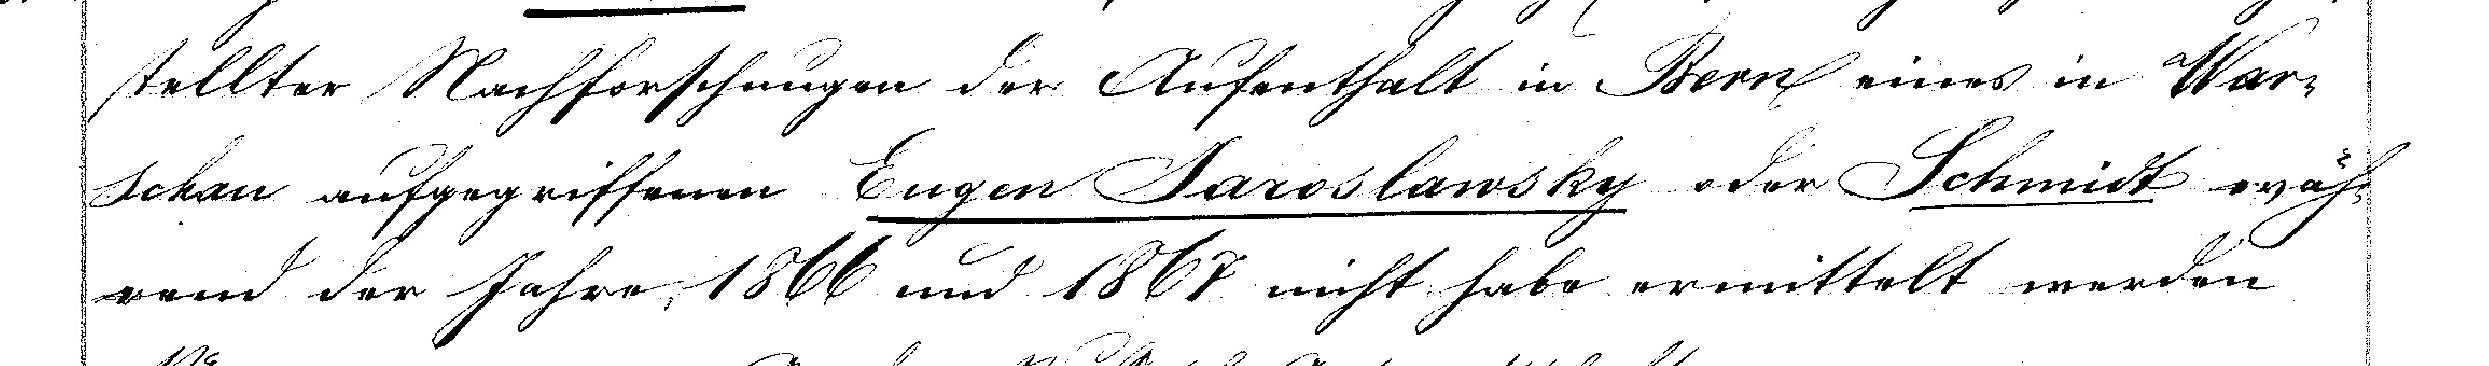 stellter Nachforschungen der Aufenthalt in Bern eines in War-
schau aufgegriffenen Eugen Jaroslawsky oder Schmidt wäh-
rend der Jahre 1866 und 1867 nicht habe ermittelt werden